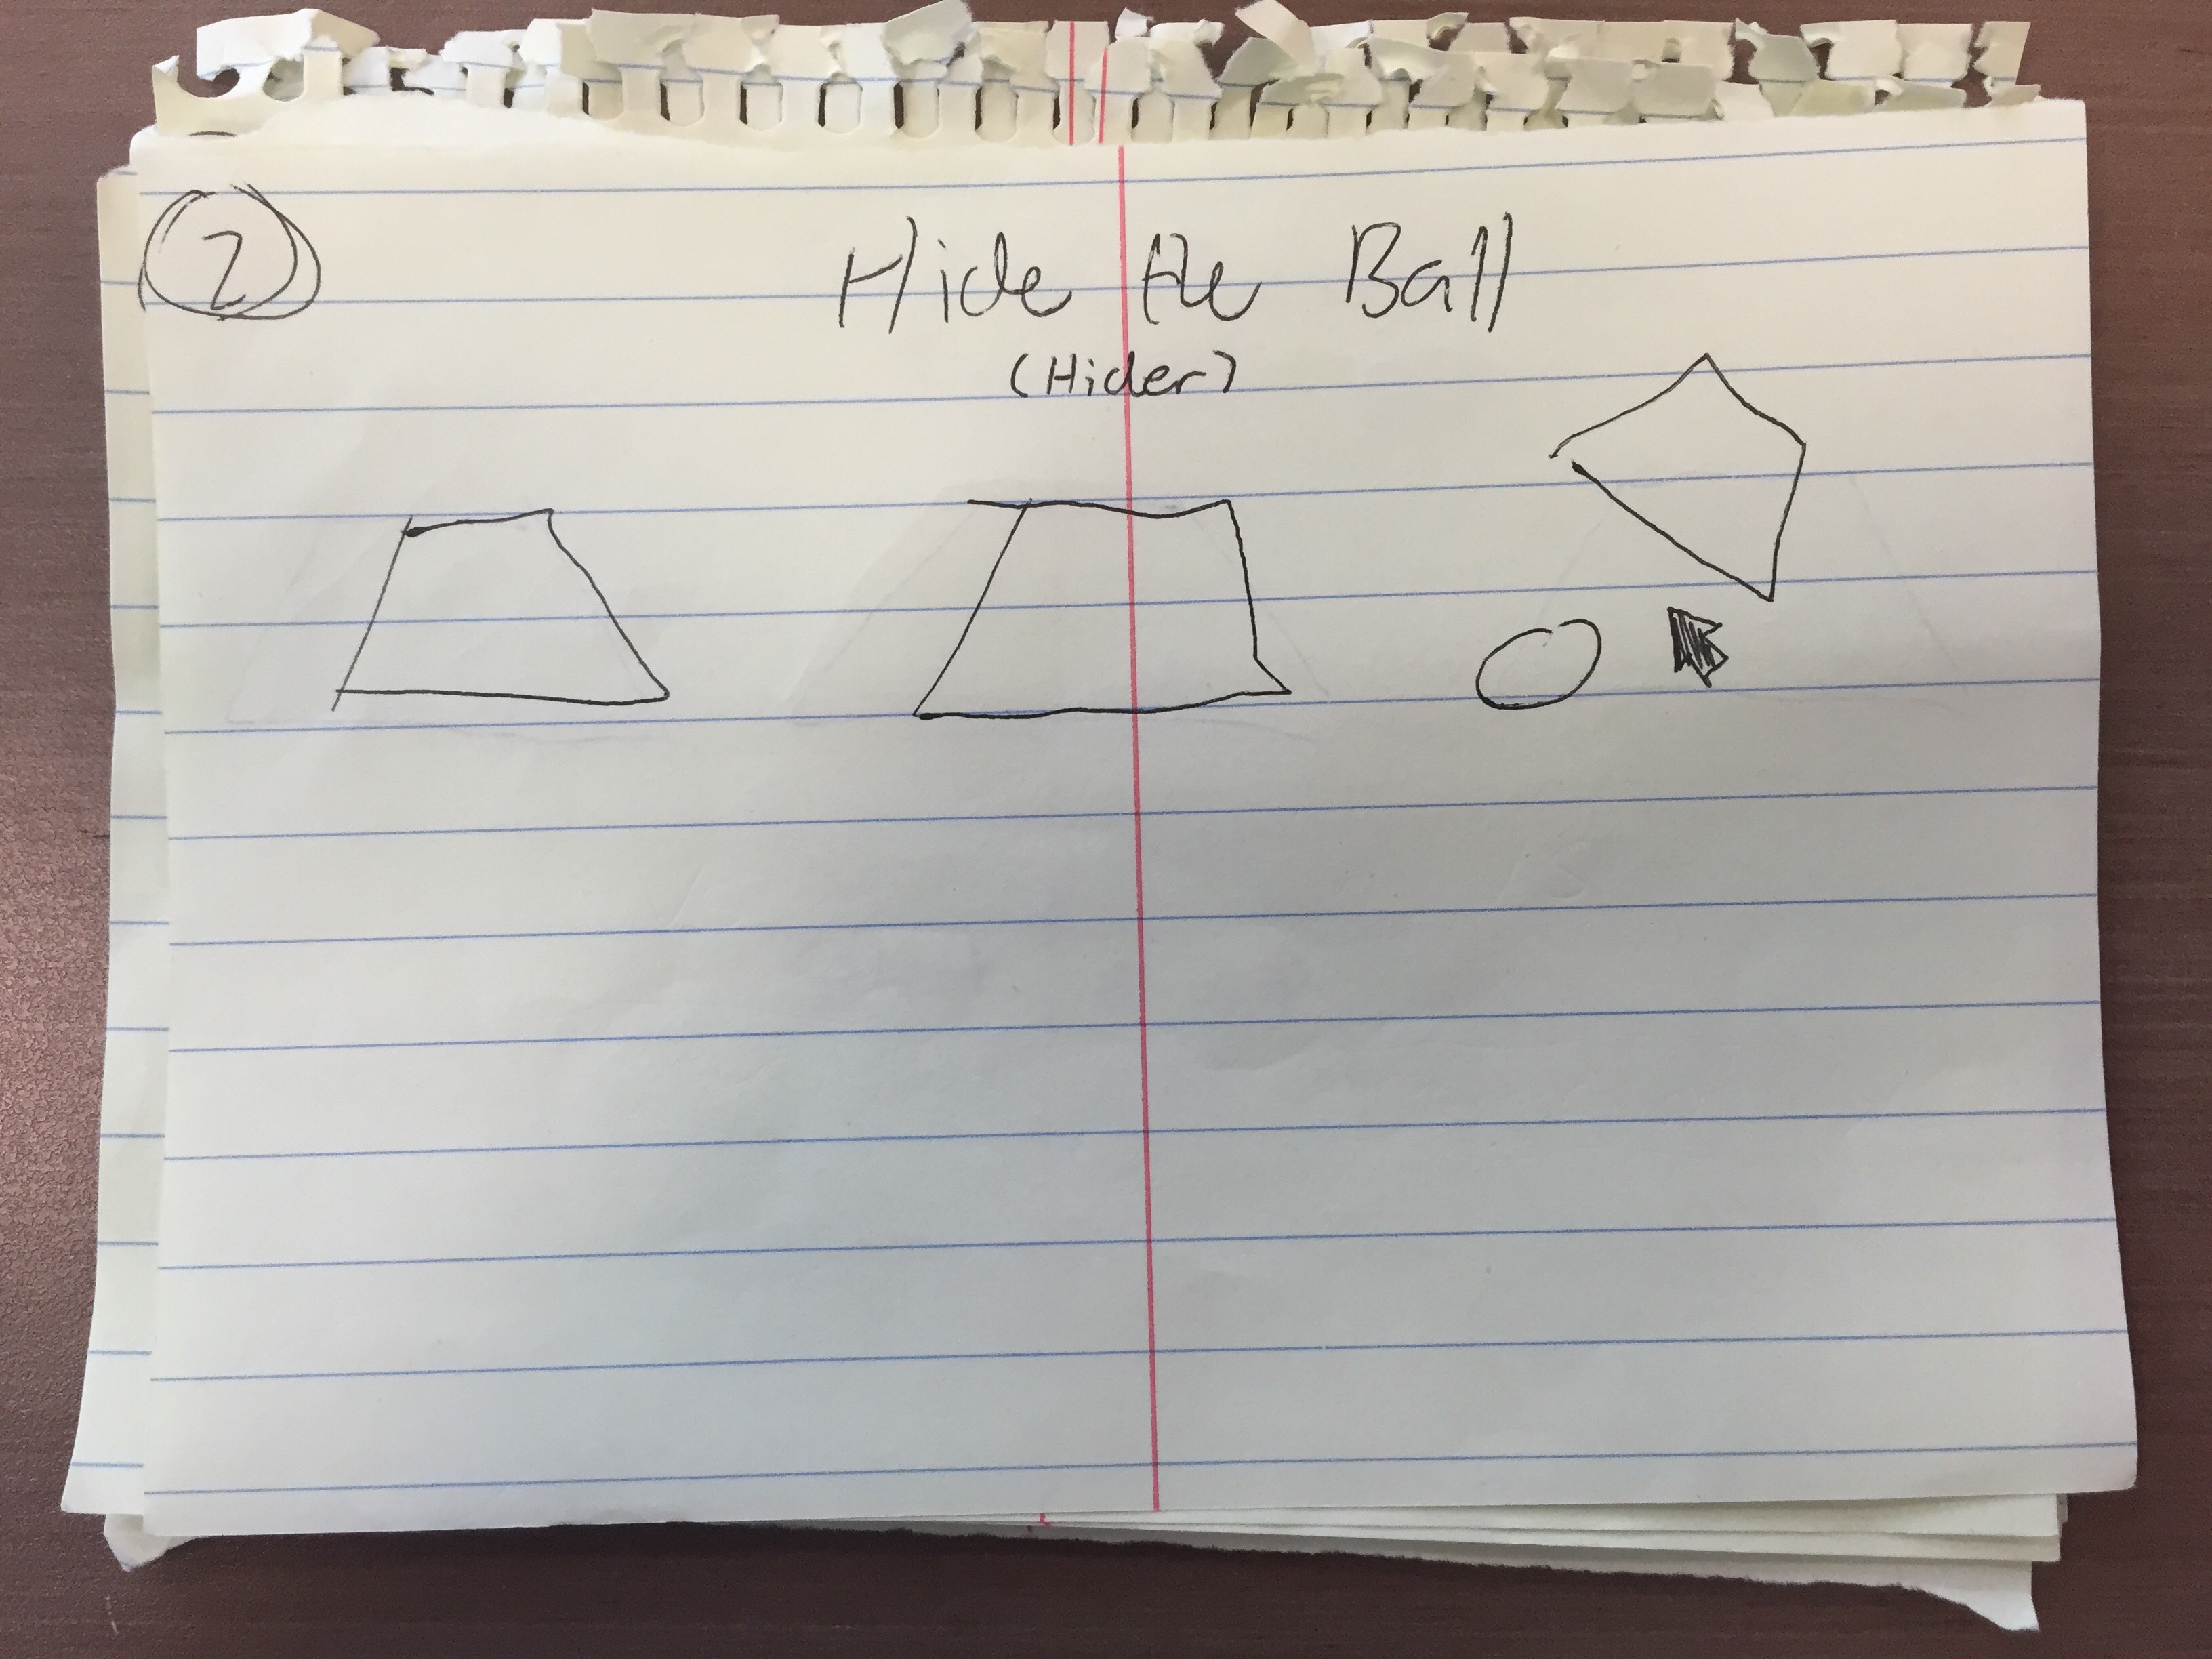 2
Hide the Ball
(Hider)